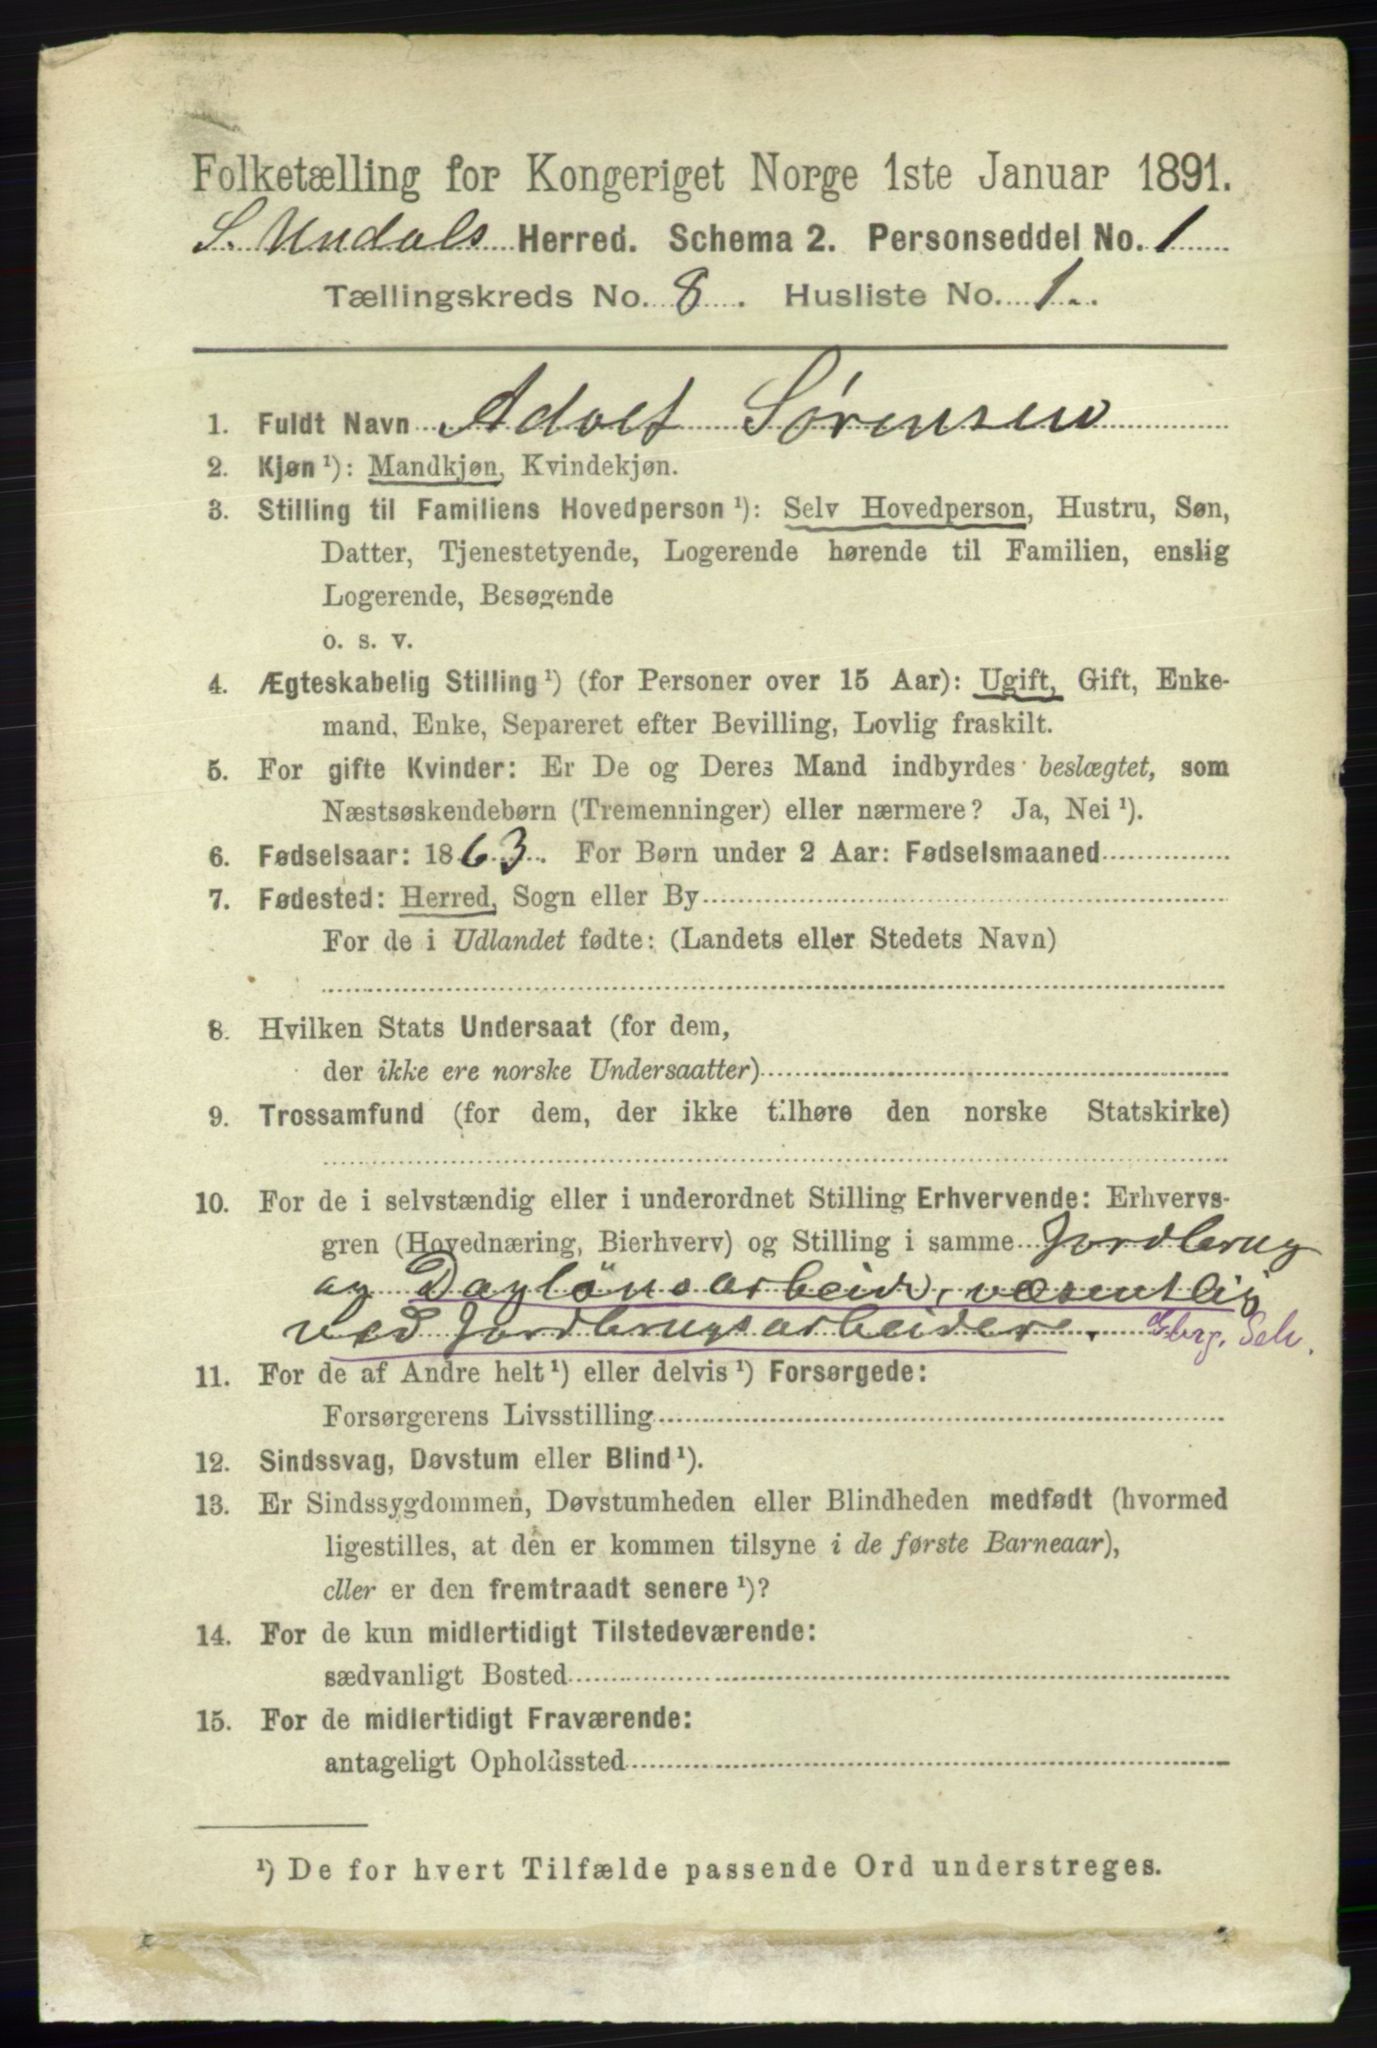 Folketælling for Kongeriget Norge 1ste Januar 1891.
S. Undals Herred. Schema 2. Personseddel No. 1
Tællingskreds No. 8. Husliste No. 1.
1. Fuldt Navn Adolf Sørensen
2. Kjøn ¹): Mandkjøn, Kvindekjøn.
3. Stilling til Familiens Hovedperson ¹): Selv Hovedperson, Hustru, Søn,
Datter, Tjenestetyende, Logerende hørende til Familien, enslig
Logerende, Besøgende
o. s. v.
4. Ægteskabelig Stilling ¹) (for Personer over 15 Aar): Ugift, Gift, Enke-
mand, Enke, Separeret efter Bevilling, Lovlig fraskilt.
5. For gifte Kvinder: Er De og Deres Mand indbyrdes beslægtet, som
Næstsøskendebørn (Tremenninger) eller nærmere? Ja, Nei ¹).
6. Fødselsaar: 1863. For Børn under 2 Aar: Fødselsmaaned
7. Fødested: Herred, Sogn eller By
For de i Udlandet fødte: (Landets eller Stedets Navn)
8. Hvilken Stats Undersaat (for dem,
der ikke ere norske Undersaatter)
9. Trossamfund (for dem, der ikke tilhøre den norske Statskirke)
10. For de i selvstændig eller i underordnet Stilling Erhvervende: Erhvervs-
gren (Hovednæring, Bierhverv) og Stilling i samme Jordbrug
og Daglönsarbeide, væsentlig
ved Jordbrugsarbeidere. Gbrg. Selv.
11. For de af Andre helt ¹) eller delvis ¹) Forsørgede:
Forsørgerens Livsstilling
12. Sindssvag, Døvstum eller Blind ¹).
13. Er Sindssygdommen, Døvstumheden eller Blindheden medfødt (hvormed
ligestilles, at den er kommen tilsyne i de første Barneaar),
eller er den fremtraadt senere ¹)?
14. For de kun midlertidigt Tilstedeværende:
sædvanligt Bosted
15. For de midlertidigt Fraværende:
antageligt Opholdssted
¹) De for hvert Tilfælde passende Ord understreges.